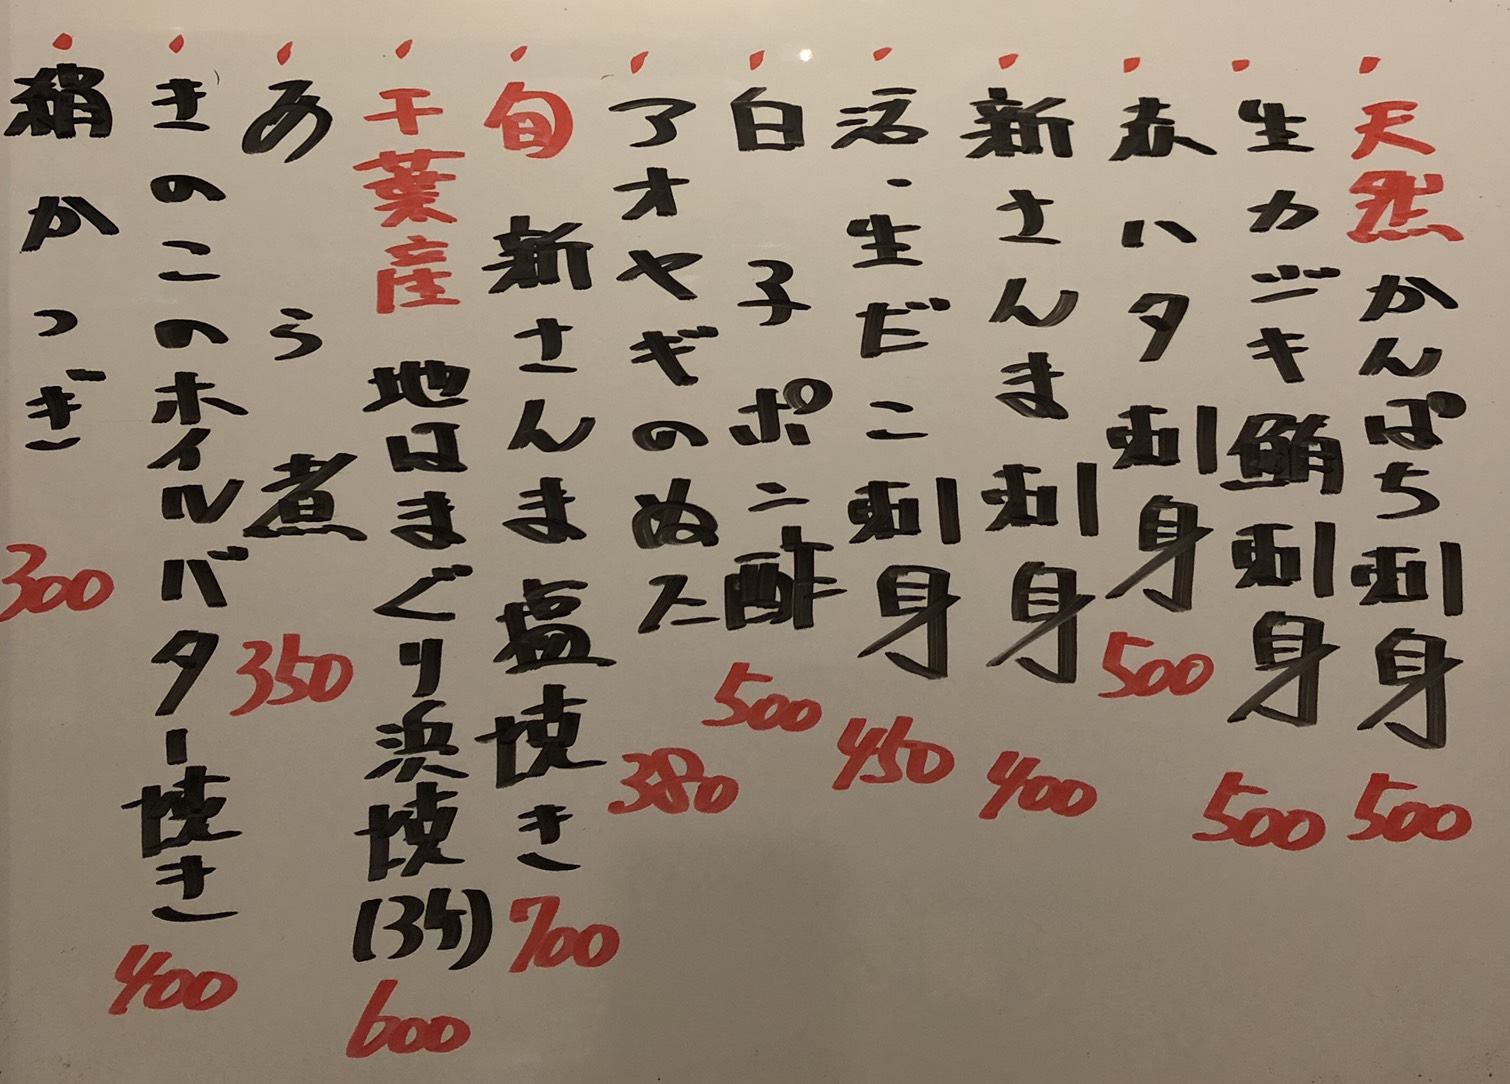 天然かんぱち刺身 500
生カジキ鮪刺身 500
赤ハタ刺身 500
新さんま刺身 400
活・生だこ刺身 450
白子ポン酢 500
アオヤギのぬた 380
旬 新さんま塩焼き 700
千葉産 地はまぐり浜焼(3ケ) 600
あら煮 350
きのこのホイルバター焼き 400
絹かつぎ 300